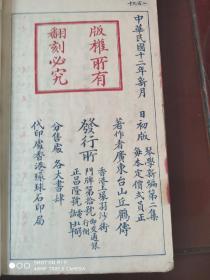 中華民國十二年新月 日初版
琴學新編第二集
每本定價弍員正
版權所有
翻刻必究
著作者廣東台山丘鶴儔
發行所
香港上環孖沙街
門牌第拾號
正昌隆號
分售處 各大書肆
代印處香港環球石印局